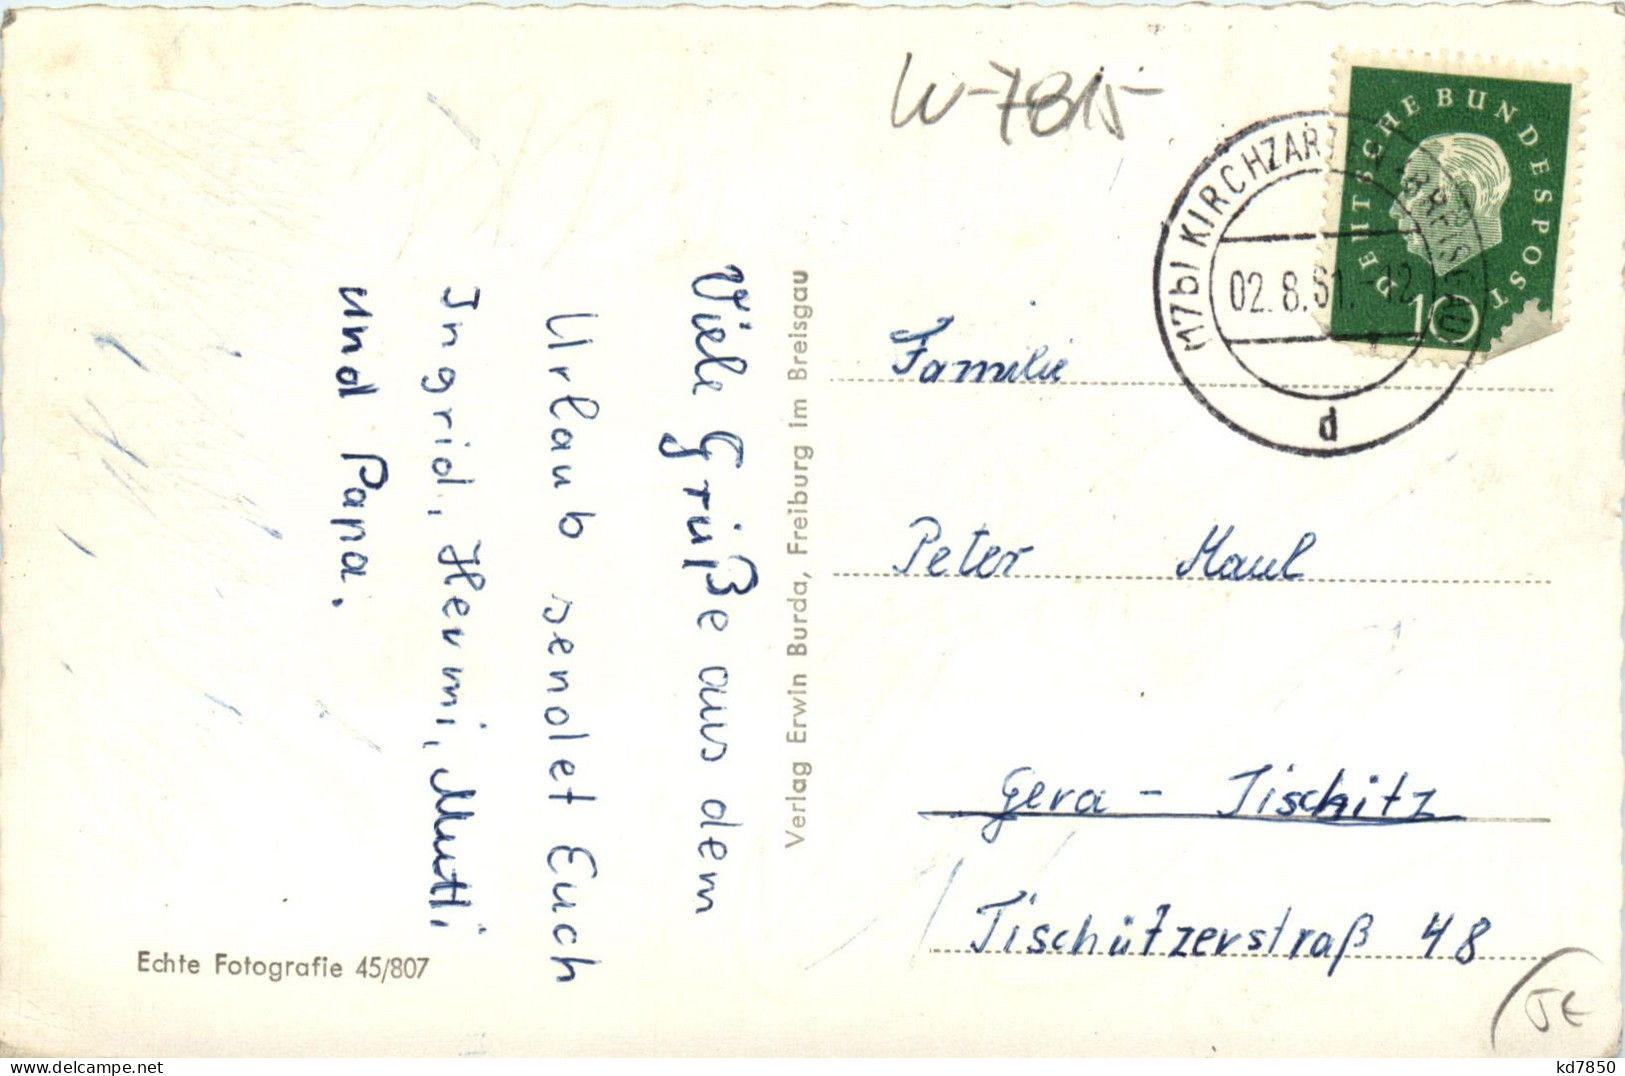 W-7815-
DEUTSCHE BUNDESPOST
10
(17b) KIRCHZARTEN
02.8.61.-12
d
Viele Grüße aus dem
Urlaub sendet Euch
Ingrid, Hermi, Mutti
und Papa.
Verlag Erwin Burda, Freiburg im Breisgau
Echte Fotografie 45/807
Familie
Peter Maul
Gera - Tischitz
Tischützerstraß 48
kd7850